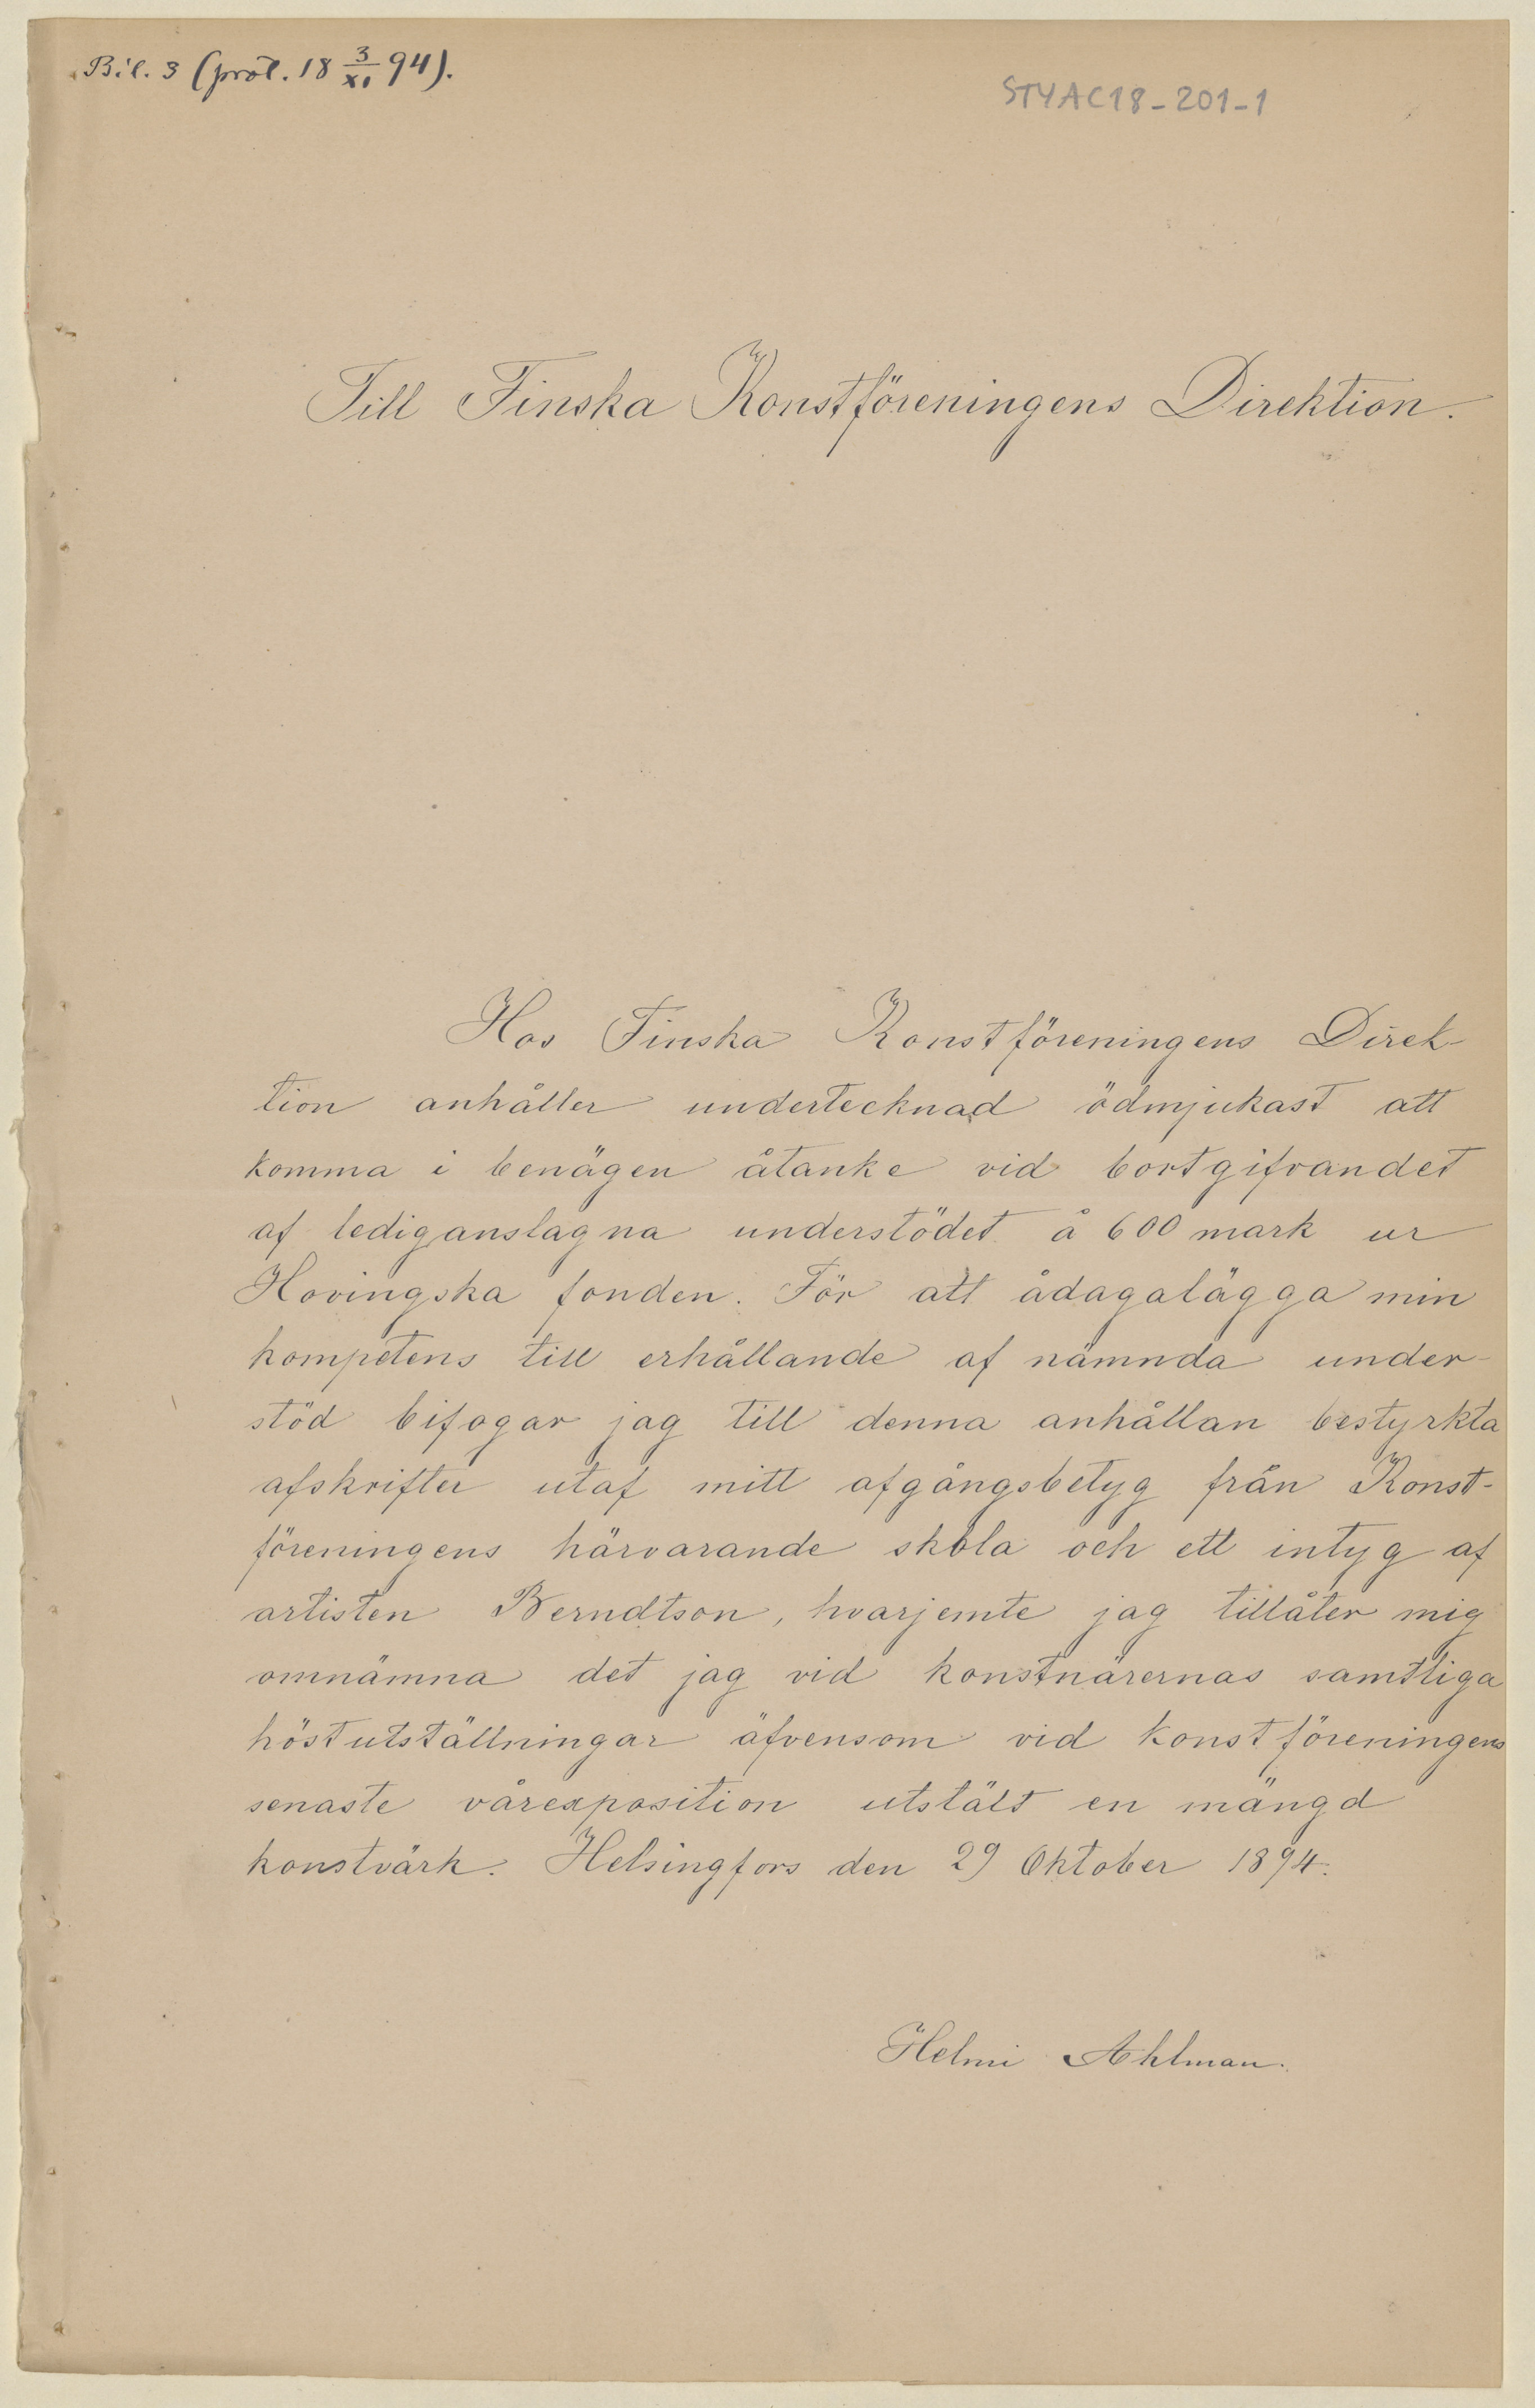 Bil. 3 (prot. 18 3/XI 94).
STYAC18-201-1
Till Finska Konstföreningens Direktion.
Hos Finska Konstföreningens Direk-
tion anhåller undertecknad ödmjukast att
komma i benägen åtanke vid bortgifvandet
af lediganslagna understödet å 600 mark ur
Hovingska fonden. För att ådagalägga min
kompetens till erhållande af nämnda under-
stöd bifogar jag till denna anhållan bestyrkta
afskrifter utaf mitt afgångsbetyg från Konst-
föreningens härvarande skola och ett intyg af
artisten Berndtson, hvarjemte jag tillåter mig
omnämna det jag vid konstnärernas samtliga
höstutställningar äfvensom vid konstföreningens
senaste vårexposition utstält en mängd
konstvärk. Helsingfors den 29 Oktober 1894.
Helmi Ahlman.